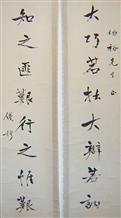 伯裕先生正
大巧若拙大辯若訥
知之匪艱行之惟艱